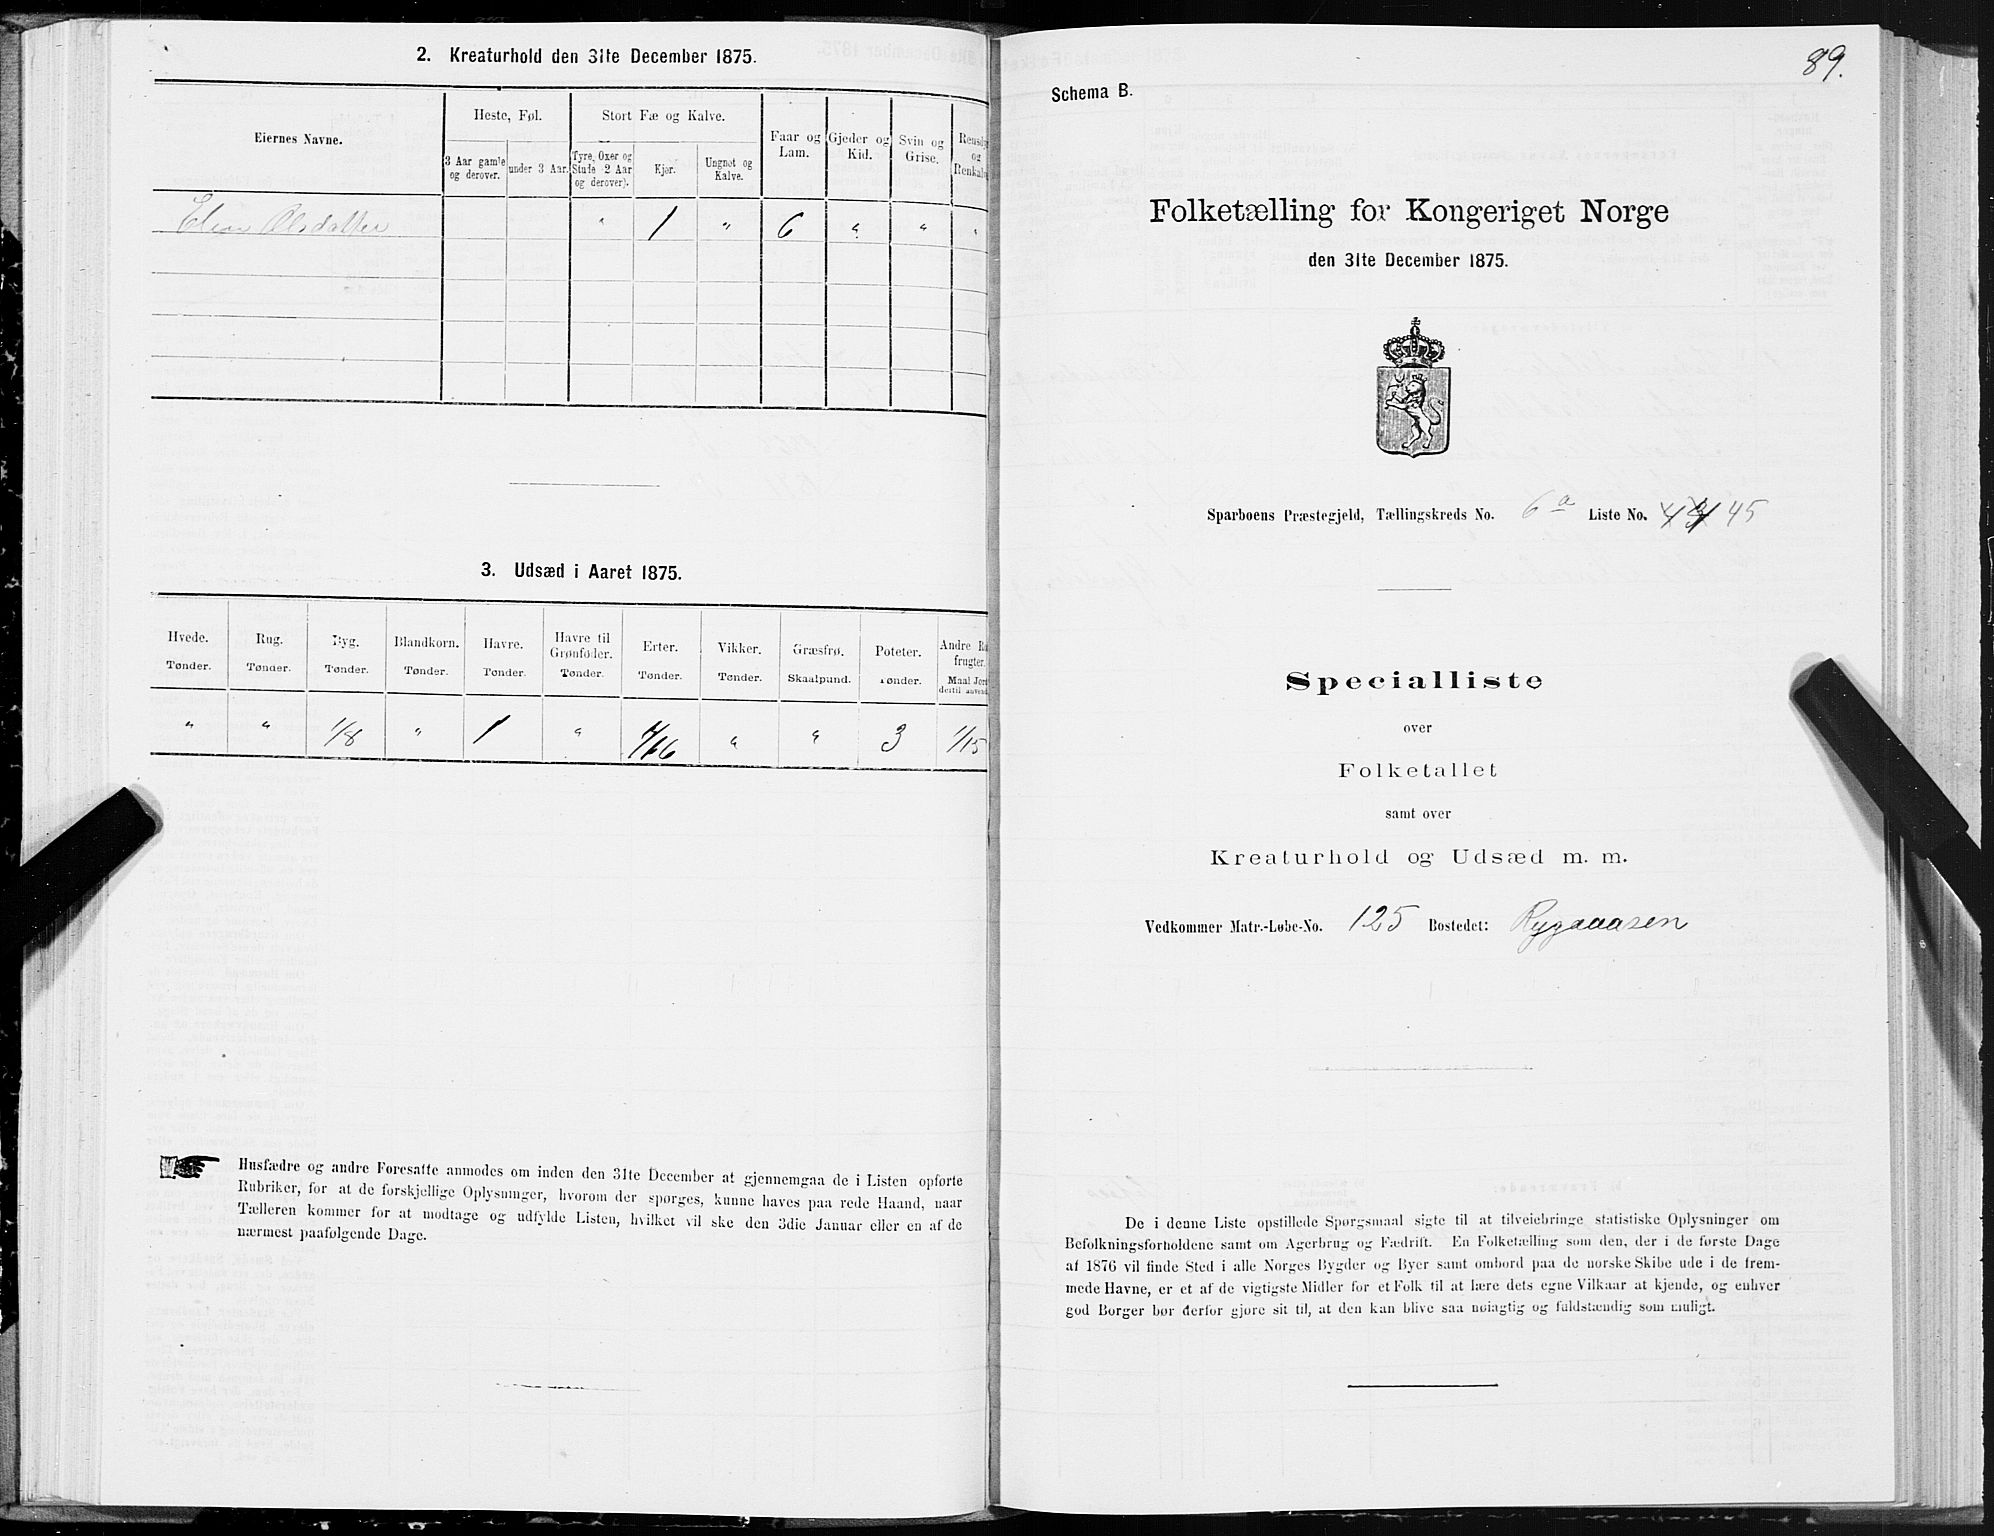 2. Kreaturhold den 31te December 1875.
Eiernes Navne.
Heste, Føl.
Stort Fæ og Kalve.
Faar og Lam.
Gjeder og Kid.
Svin og Grise.
og
3 Aar gamle og derover.
under 3 Aar.
Tyre, Oxer og Stude 2 Aar og derover).
Kjør.
Ungnøt og Kalve.
Olsdatter " 1 " 6 " " "
3. Udsæd i Aaret 1875.
Hvede. Rug. Byg. Blandkorn. Havre. Havre til Grønføder. Erter. Vikker. Græsfrø. Poteter. Andre
frugter.
Tønder. Tønder. Tønder. Tønder. Tønder. Tønder. Tønder. Tønder. Skaalpund. Tønder. Maal Jord
dertil
" " 1/8 " 1 " 1/16 " " 3 1/15
Husfædre og andre Foresatte anmodes om inden den 31te December at gjennemgaa de i Listen opførte
Rubriker, for at de forskjellige Oplysninger, hvorom der spørges, kunne haves paa rede Haand, naar
Tælleren kommer for at modtage og udfylde Listen, hvilket vil ske den 3die Januar eller en af de
nærmest paafølgende Dage.
89.
Schema B.
Folketælling for Kongeriget Norge
den 31te December 1875.
Sparboens Præstegjeld, Tællingskreds No. 6a Liste No. 45
Specialliste
over
Folketallet
samt over
Kreaturhold og Udsæd m. m.
Vedkommer Matr.-Løbe-No. 125 Bostedet: Rygaaasen
De i denne Liste opstillede Spørgsmaal sigte til at tilveiebringe statistiske Oplysninger om
Befolkningsforholdene samt om Agerbrug og Fædrift. En Folketælling som den, der i de første Dage
af 1876 vil finde Sted i alle Norges Bygder og Byer samt ombord paa de norske Skibe ude i de frem-
mede Havne, er et af de vigtigste Midler for et Folk til at lære dets egne Vilkaar at kjende, og enhver
god Borger bør derfor gjøre sit til, at den kan blive saa nøiagtig og fuldstændig som muligt.